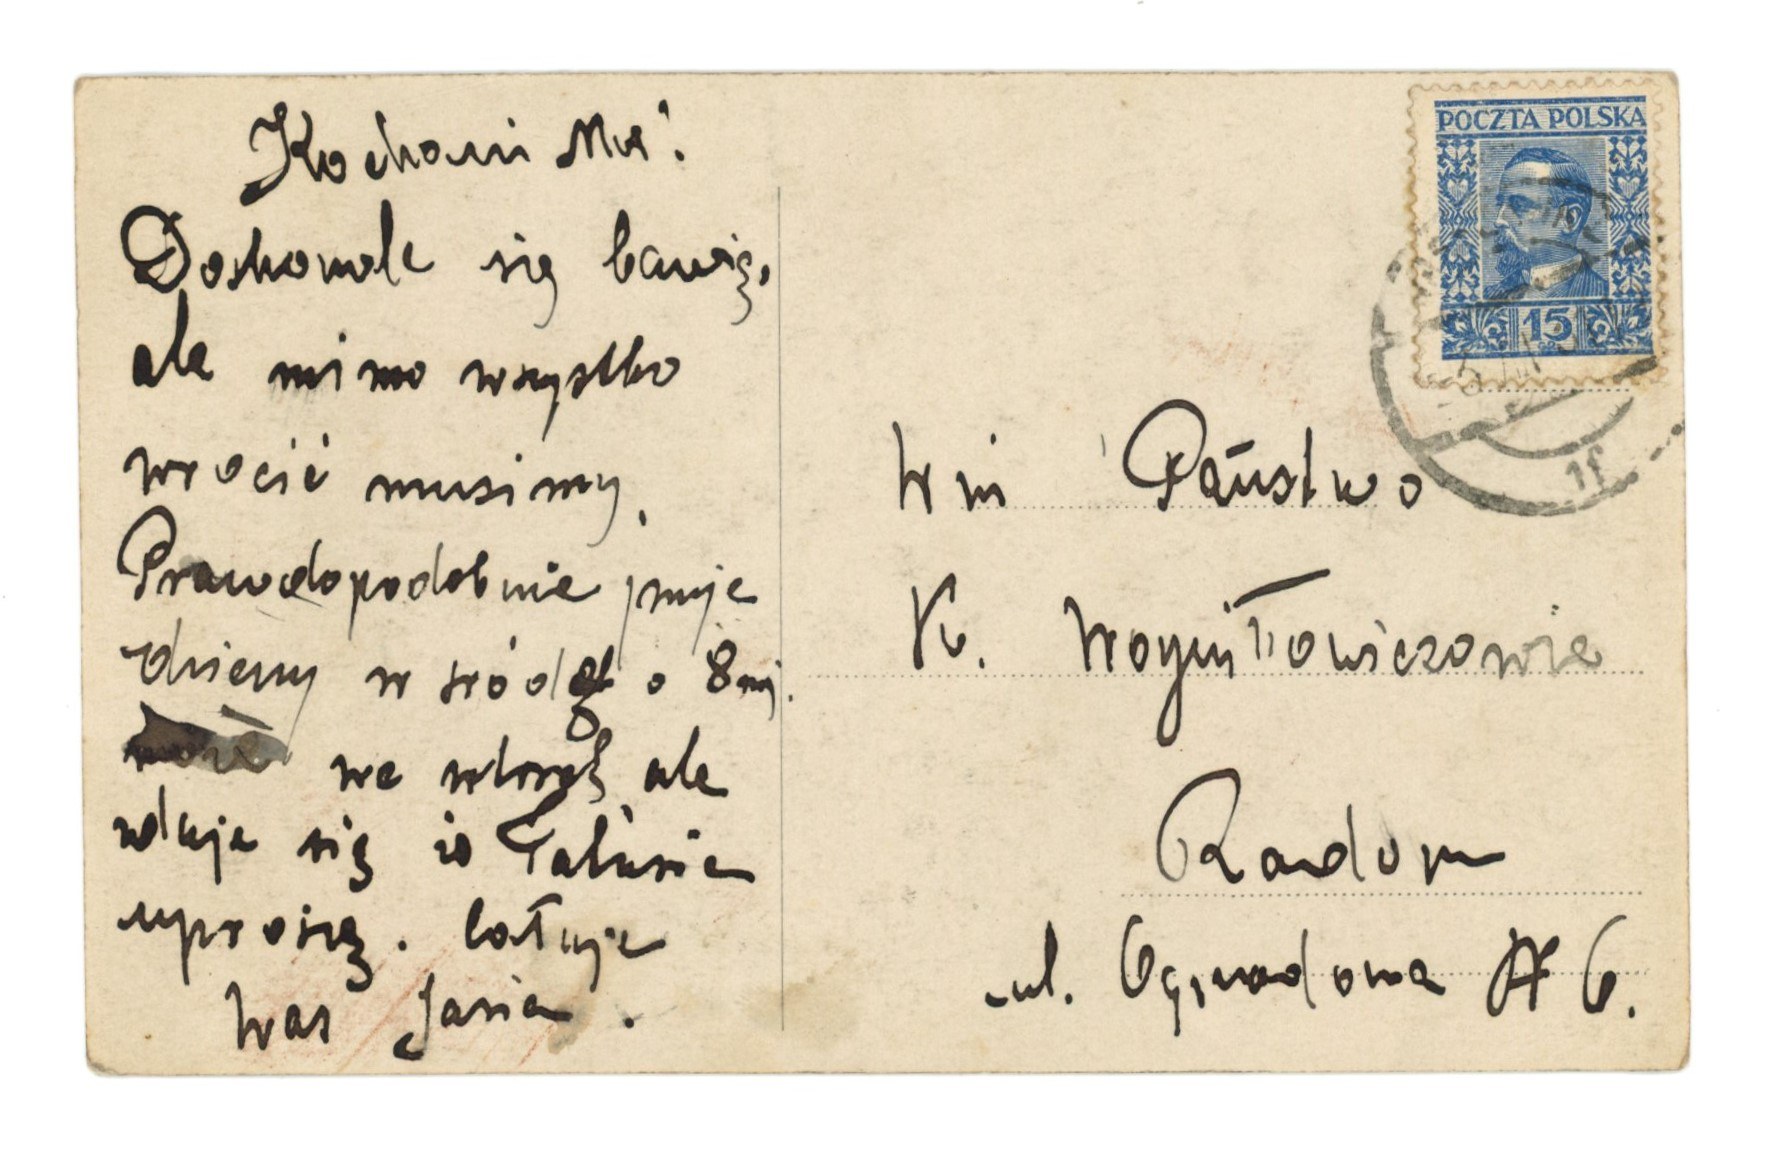 Kochani Moi!
Doskonale się bawię,
ale mimo wszystko
wrócić musimy.
Prawdopodobnie przyje
dziemy w środę o 8 w.
może we wtorek ale
zdaje się że
uproszę. Całuję
Was Jasia.
POCZTA POLSKA
15
WPP
Państwo
K. Woyniłłowiczowie
Radom
ul. Ogrodowa № 6.
1f